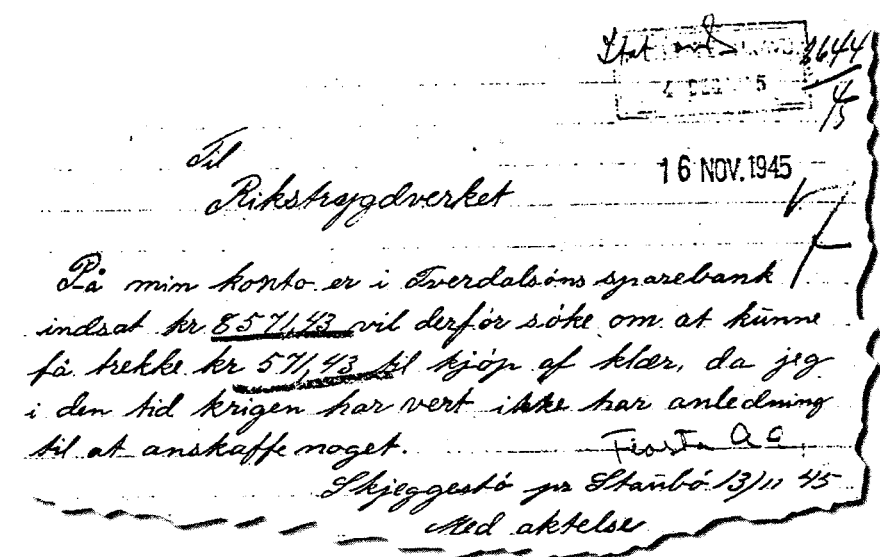 2644
4 DES 5
4/5
16 NOV. 1945
Til
Rikstrygdverket
På min konto er i Tverdalsöns sparebank
indsat kr 8571,43 vil derför söke om at kunne
få trekke kr 571,43 til kjöp af klær, da jeg
i den tid krigen har vert ikke har anledning
til at anskaffe noget.
Skjeggestö pr Staubö 13/11 45
Med aktelse